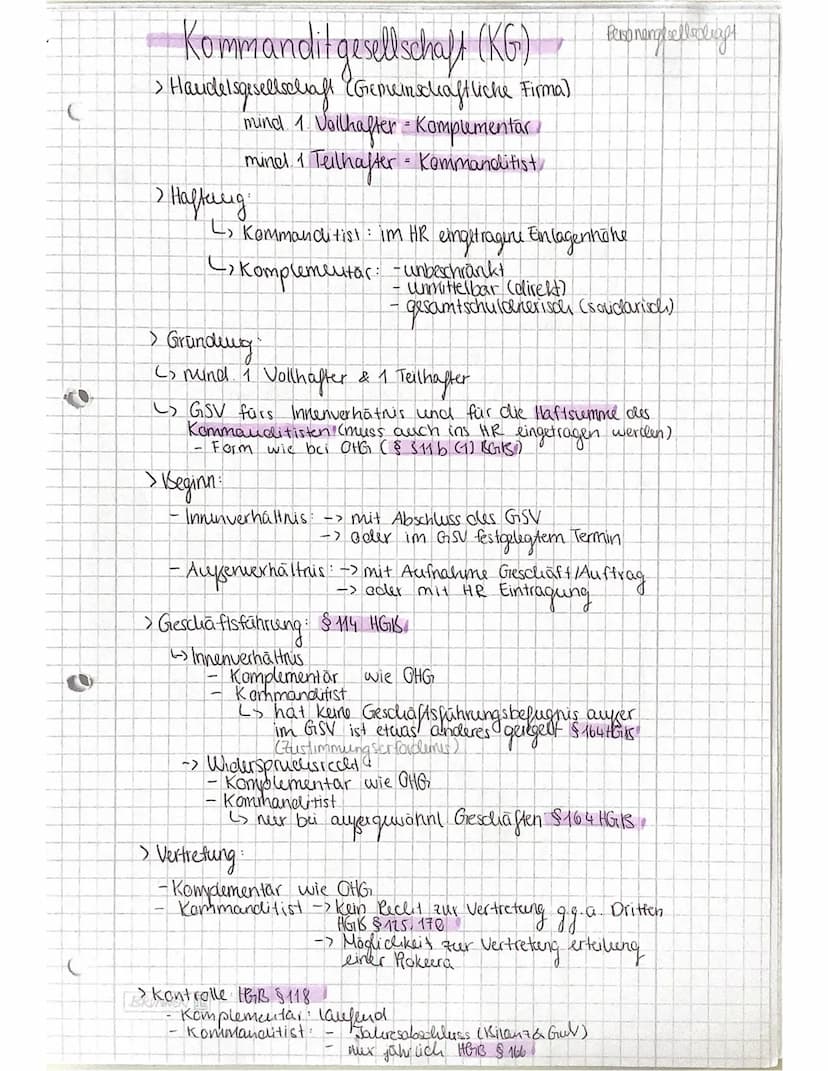 Personengesellschaft
Kommanditgesellschaft (KG)
> Handelsgesellschaft (Gemeinschaftliche Firma)
mind. 1 Vollhafter = Komplementär
mind. 1 Teilhafter = Kommanditist
> Haftung:
↳ Kommanditist: im HR eingetragene Einlagenhöhe
↳ Komplementär: - unbeschränkt
- unmittelbar (direkt)
- gesamtschuldnerisch (solidarisch)
> Gründung:
↳ mind. 1 Vollhafter & 1 Teilhafter
↳ GSV fürs Innenverhältnis und für die Haftsumme des
Kommanditisten! (muss auch ins HR eingetragen werden)
- Form wie bei OHG (§ 311b (1) BGB)
> Beginn:
- Innenverhältnis: -> mit Abschluss des GSV
-> oder im GSV festgelegtem Termin
- Außenverhältnis: -> mit Aufnahme Geschäft/Auftrag
-> oder mit HR Eintragung
> Geschäftsführung: § 114 HGB
↳ Innenverhältnis
- Komplementär wie OHG
- Kommanditist
↳ hat keine Geschäftsführungsbefugnis außer
im GSV ist etwas anderes geregelt § 164 HGB
(Zustimmungserfordernis)
-> Widerspruchsrecht
- Komplementär wie OHG
- Kommanditist
↳ nur bei außergewöhnl Geschäften § 164 HGB
> Vertretung:
- Komplementär wie OHG
- Kommanditist -> Kein Recht zur Vertretung g.g.a. Dritten
HGB § 125, 170
-> Möglichkeit zur Vertretung erteilung
einer Prokura
> Kontrolle: HGB § 118
- Komplementär: laufend
- Kommanditist: - Jahresabschluss (Bilanz & GuV)
- nur jährlich HGB § 166